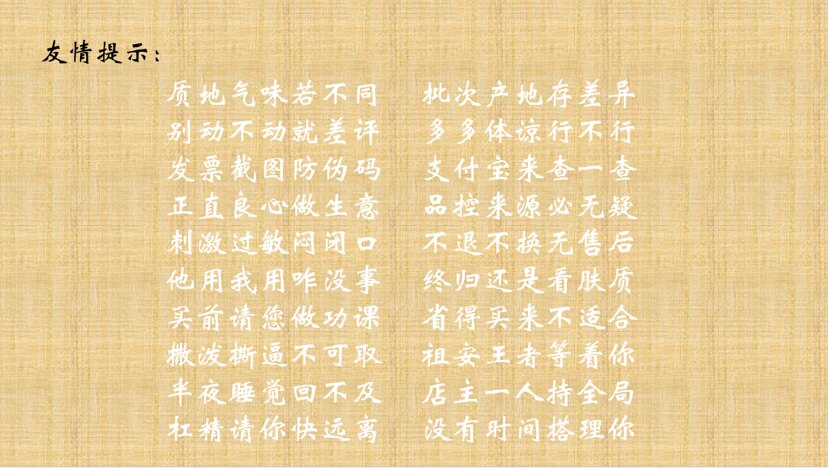 友情提示：
质地气味若不同 批次产地存差异
别动不动就差评 多多体谅行不行
发票截图防伪码 支付宝来查一查
正直良心做生意 品控来源必无疑
刺激过敏闷闭口 不退不换无售后
他用我用咋没事 终归还是看肤质
买前请您做功课 省得买来不适合
撒泼撕逼不可取 祖安王者等着你
半夜睡觉回不及 店主一人持全局
杠精请你快远离 没有时间搭理你